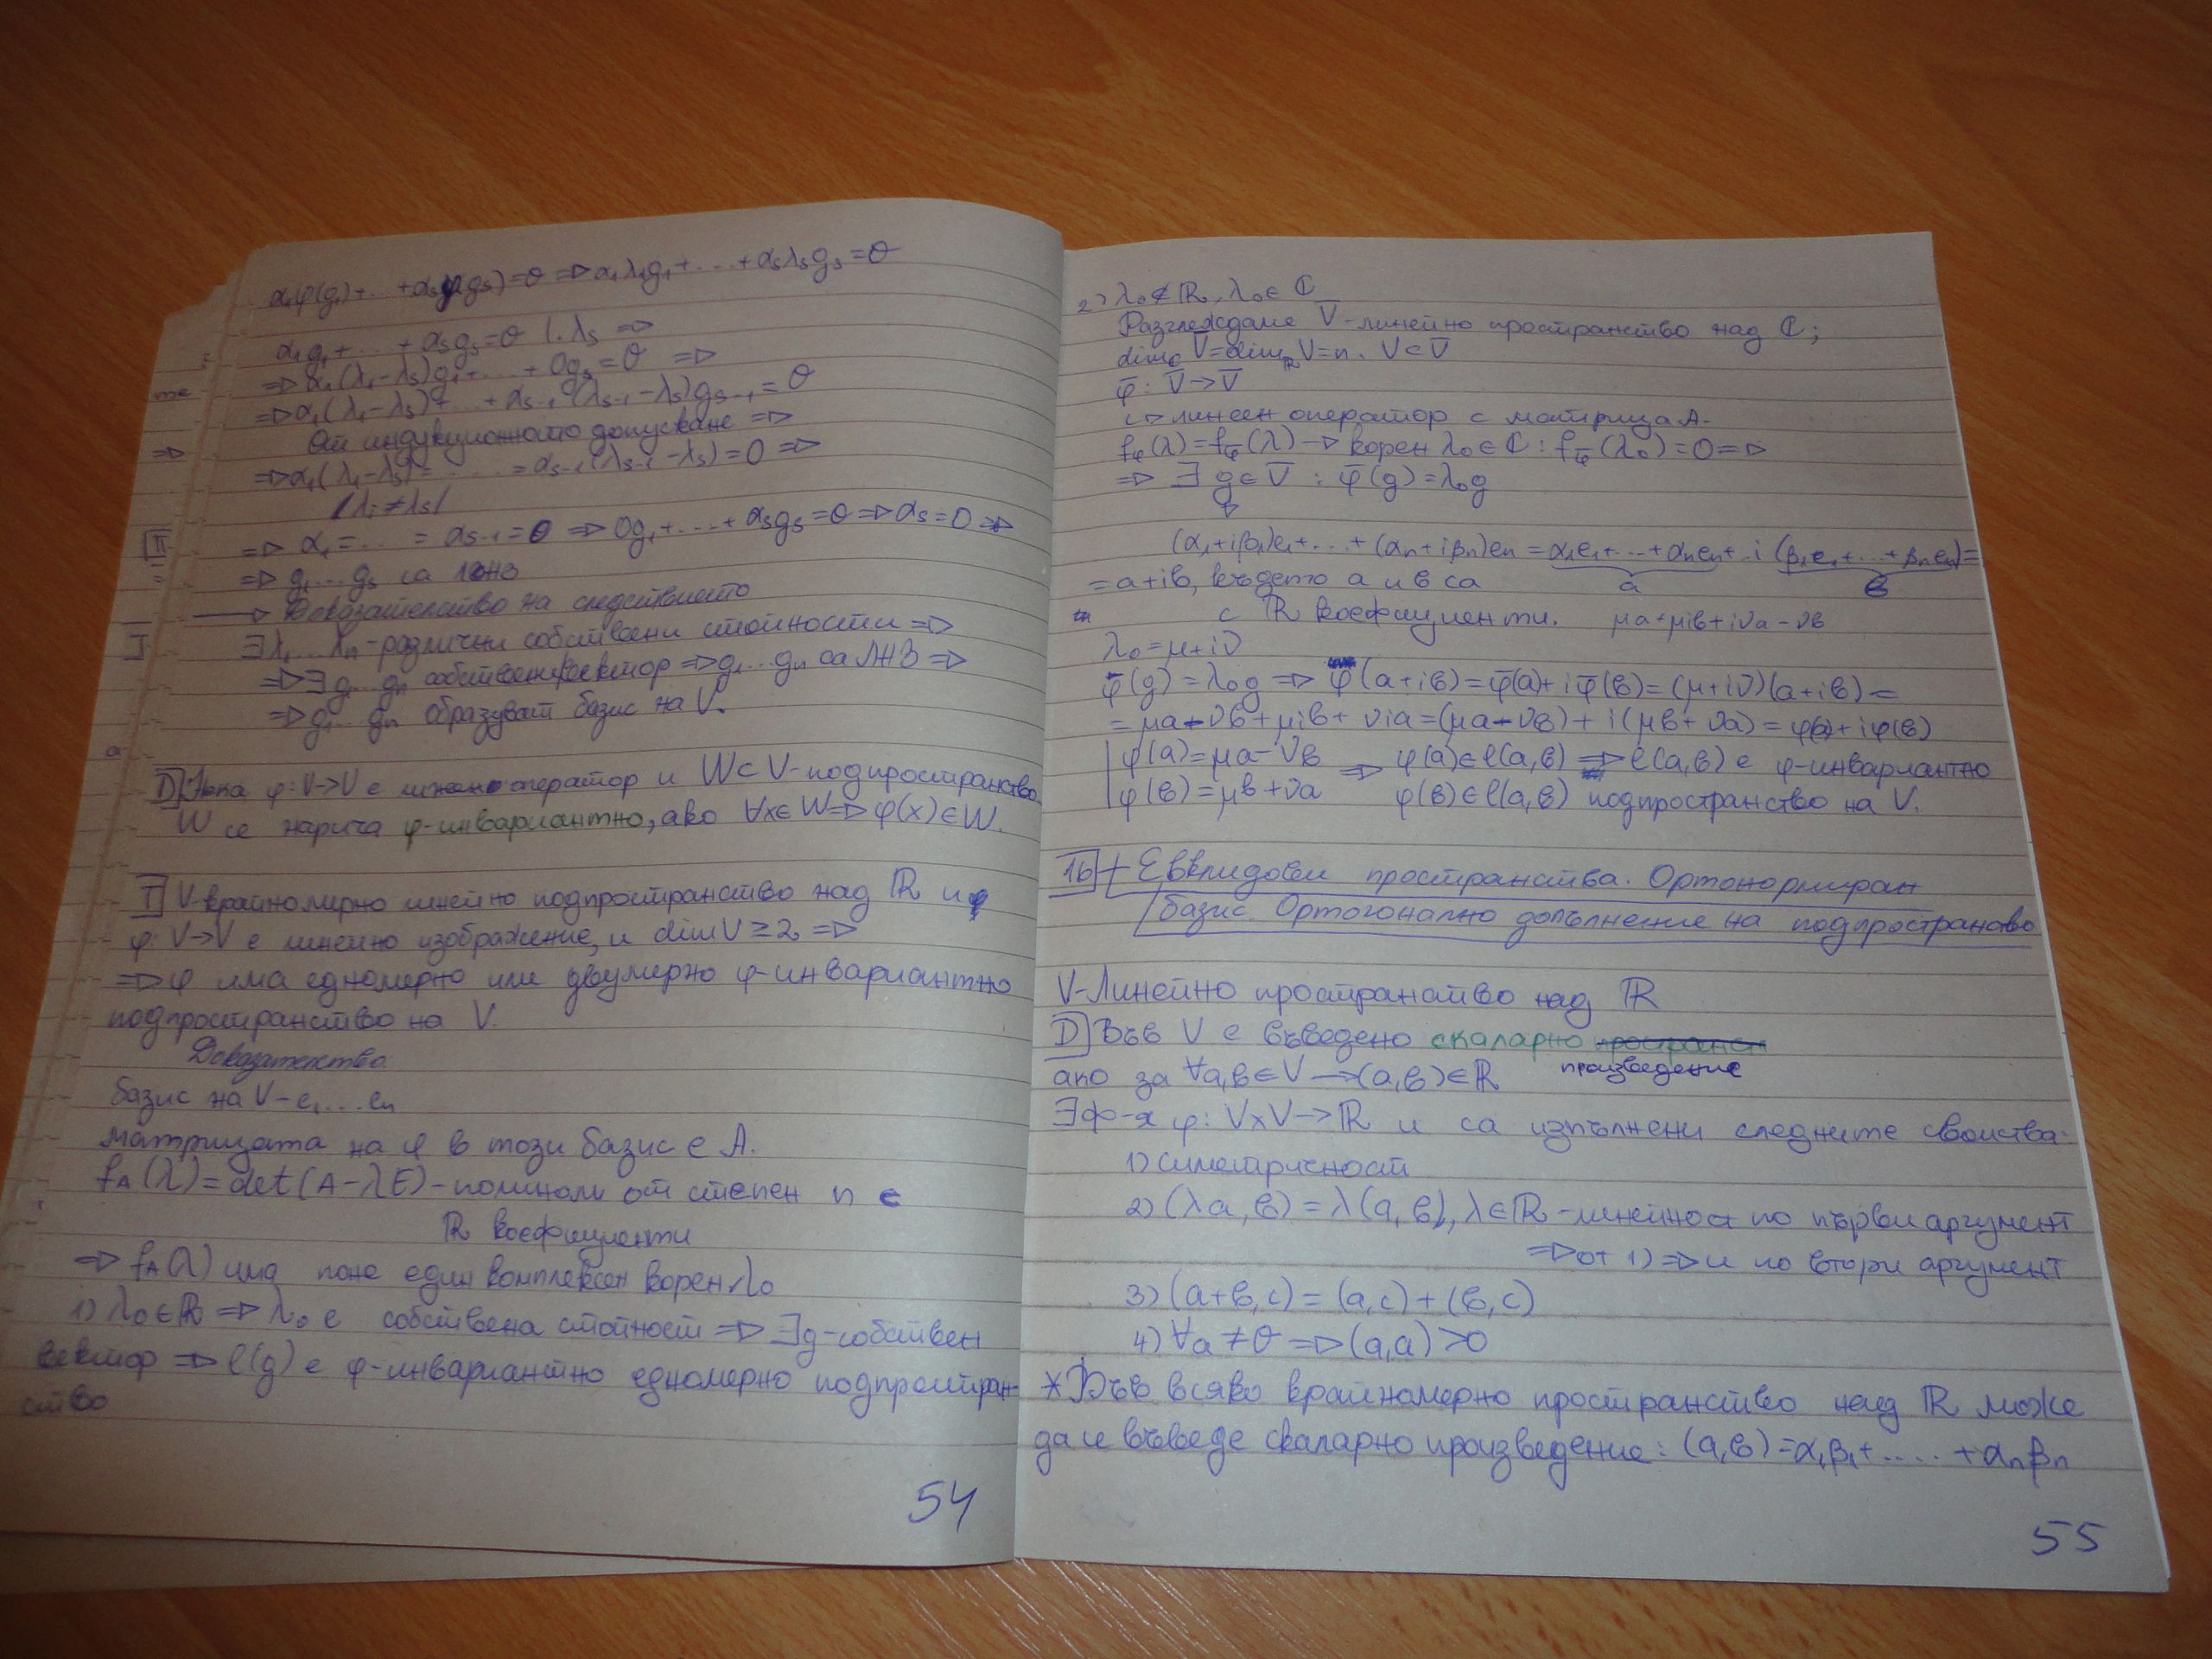 α₁φ(g₁)+...+αsφ(gs)=θ ⇒ α₁λ₁g₁+...+αsλsgs=θ
α₁g₁+...+αsgs=θ |.λs ⇒
⇒ α₁(λ₁-λs)g₁+...+0gs=θ ⇒
⇒ α₁(λ₁-λs)+...+αs-1(λs-1-λs)gs-1=θ
От индукционното допускане ⇒
⇒ α₁(λ₁-λs)=.....=αs-1(λs-1-λs)=0 ⇒
/λi≠λs/
⇒ α₁=...=αs-1=0 ⇒ 0g₁+...+αsgs=θ ⇒ αs=0 ⇒
⇒ g₁...gs са ЛНЗ
→ Доказателство на следствието
∃λ₁...λn-различни собствени стойности ⇒
⇒ ∃g₁...gn собствени вектор ⇒ g₁...gn са ЛНЗ ⇒
⇒ g₁...gn образуват базис на V.
D Нека φ:V→V е линеен оператор и W⊂V-подпространство
W се нарича φ-инвариантно, ако ∀x∈W ⇒ φ(x)∈W.
T V-крайномерно линейно подпространство над ℝ и φ
φ: V→V е линейно изображение, и dimV≥2 ⇒
⇒ φ има едномерно или двумерно φ-инвариантно
подпространство на V.
Доказателство:
базис на V-e₁...en
матрицата на φ в този базис е A.
fA(λ)=det(A-λE)-полином от степен n с
ℝ коефициенти
⇒ fA(λ) има поне един комплексен корен λ₀
1) λ₀∈ℝ ⇒ λ₀ е собствена стойност ⇒ ∃g-собствен
вектор ⇒ ℓ(g) е φ-инвариантно едномерно подпростран-
ство
54
2) λ₀∉ℝ, λ₀∈ℂ
Разглеждаме V̅-линейно пространство над ℂ;
dimℂV̅=dimℝV=n. V⊂V̅
φ̅: V̅→V̅
↳ линеен оператор с матрица A.
fφ(λ)=fφ̅(λ) → корен λ₀∈ℂ: fφ̅(λ₀)=0 ⇒
⇒ ∃ g∈V̅ : φ̅(g)=λ₀g
(α₁+iβ₁)e₁+...+(αn+iβn)en=α₁e₁+...+αnen+i(β₁e₁+...+βnen)=
=a+iв, където a и в са a в
с ℝ коефициенти. μa+μiв+iνa-νв
λ₀=μ+iν
φ̅(g)=λ₀g ⇒ φ̅(a+iв)=φ̅(a)+iφ̅(в)=(μ+iν)(a+iв)=
=μa-νв+μiв+νia=(μa-νв)+i(μв+νa)=φ(a)+iφ(в)
φ(a)=μa-νв ⇒ φ(a)∈ℓ(a,в) ⇒ ℓ(a,в) е φ-инвариантно
φ(в)=μв+νa φ(в)∈ℓ(a,в) подпространство на V.
16 + Евклидови пространства. Ортонормиран
базис. Ортогонално допълнение на подпространство
V-Линейно пространство над ℝ
D Във V е въведено скаларно пространст
ако за ∀a,в∈V→(a,в)∈ℝ произведение
∃ф-я φ: V×V→ℝ и са изпълнени следните свойства:
1) симетричност
2) (λa,в)=λ(a,в), λ∈ℝ-линейност по първи аргумент
⇒ от 1) ⇒ и по втори аргумент
3) (a+в,c)=(a,c)+(в,c)
4) ∀a≠θ ⇒ (a,a)>0
* Във всяко крайномерно пространство над ℝ може
да се въведе скаларно произведение: (a,в)=α₁β₁+....+αnβn
55